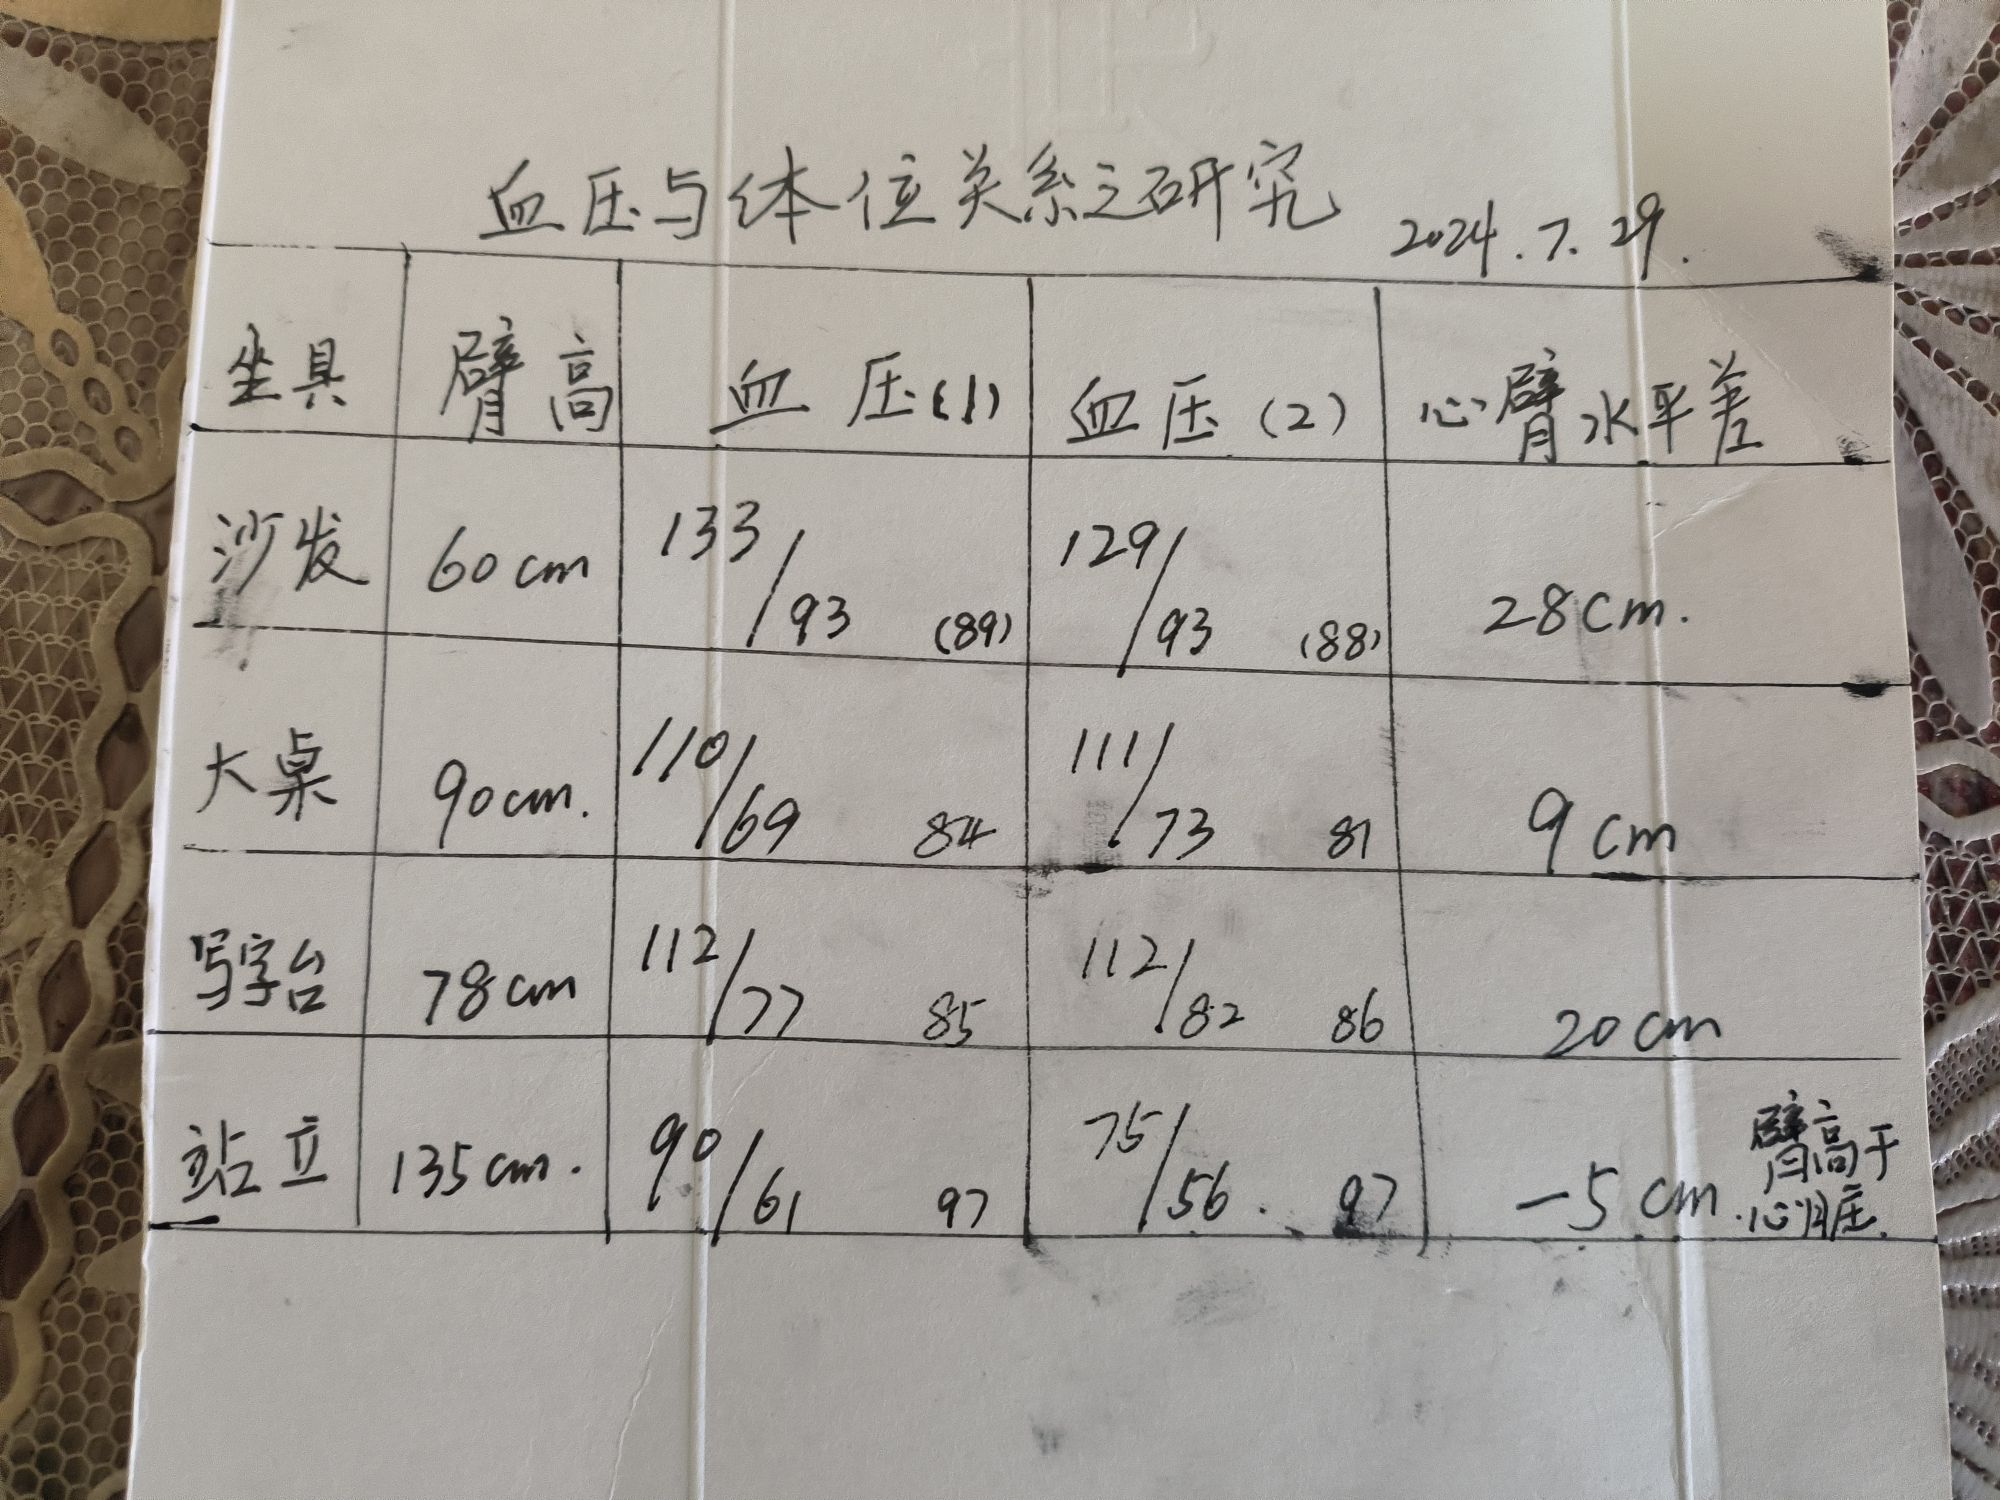 血压与体位关系之研究 2024.7.29.
坐具 臂高 血压(1) 血压(2) 心臂水平差
沙发 60cm 133/93 (89) 129/93 (88) 28cm.
大桌 90cm. 110/69 84 111/73 81 9cm
写字台 78cm 112/77 85 112/82 86 20cm
站立 135cm. 90/61 97 75/56. 97 -5cm. 臂高于
心脏.